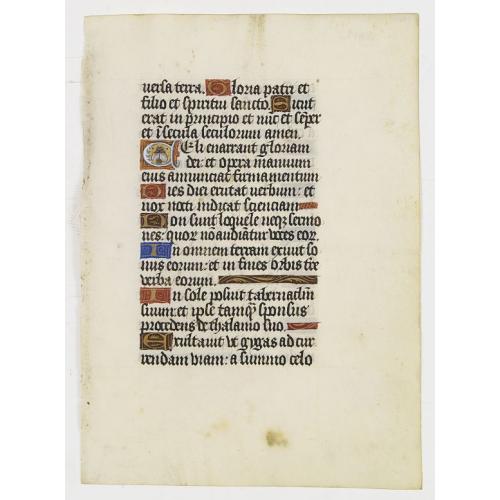 uersa terra. Gloria patri et
filio et spiritui sancto. Sicut
erat in principio et nūc et sēper
et ī secula seculorum amen.
Celi enarrant gloriam
dei: et opera manuum
eius annunciat firmamentum
Dies diei eructat uerbum: et
nox nocti indicat scienciam
Non sunt loquele neqꝫ sermo
nes: quoꝝ nō audiātur voces eoꝝ.
In omnem terram exiuit so
nus eorum: et in fines orbis tr̄e
verba eorum.
In sole posuit tabernaclm̄
suum: et ipse tamqꝫ sponsus
procedens de thalamo suo.
Exultauit vt gygas ad cur
rendam viam: a summo celo